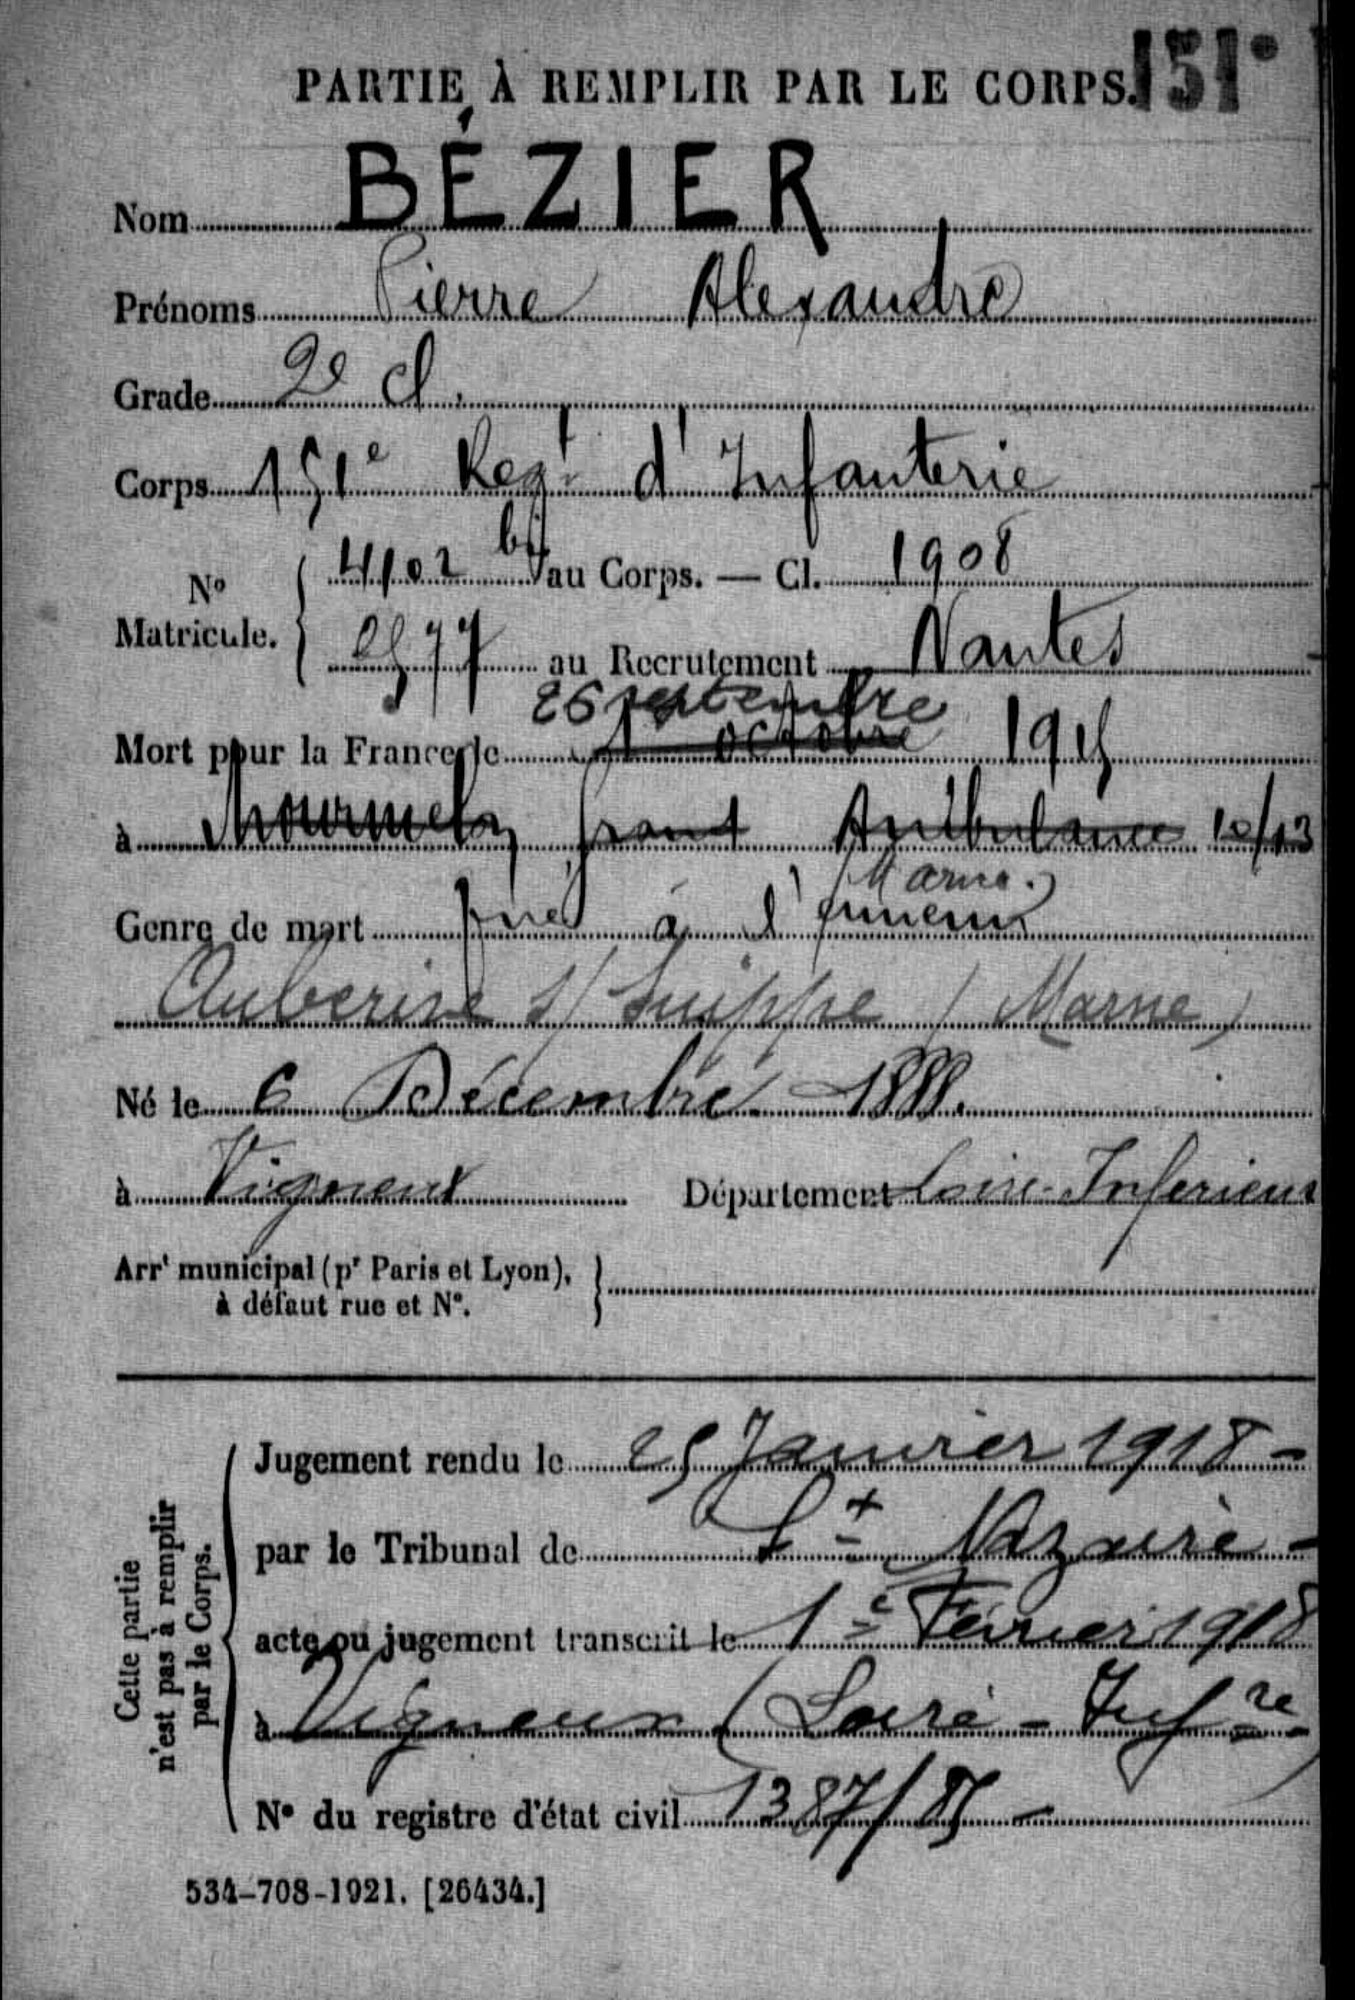 151e
PARTIE À REMPLIR PAR LE CORPS.
Nom BÉZIER
Prénoms Pierre Alexandre
Grade 2e cl.
Corps 151e Regt d'Infanterie
No Matricule. { 4102 bis au Corps. — Cl. 1908
2577 au Recrutement Nantes
26 septembre
Mort pour la France le 1 octobre 1915
à Mourmelon grand Ambulance 10/13
(Marne.)
Genre de mort tué à l'ennemi
Auberive s/ Suippe (Marne)
Né le 6 Décembre 1888.
à Vigneux Département Loire-Inferieure
Arrt municipal (pr Paris et Lyon), à défaut rue et No.
Cette partie n'est pas à remplir par le Corps.
Jugement rendu le 25 Janvier 1918 -
par le Tribunal de St Nazaire -
acte ou jugement transcrit le 1e Février 1918
à Vigneux (Loire-Infre)
No du registre d'état civil 1387/85 -
534-708-1921. [26434.]